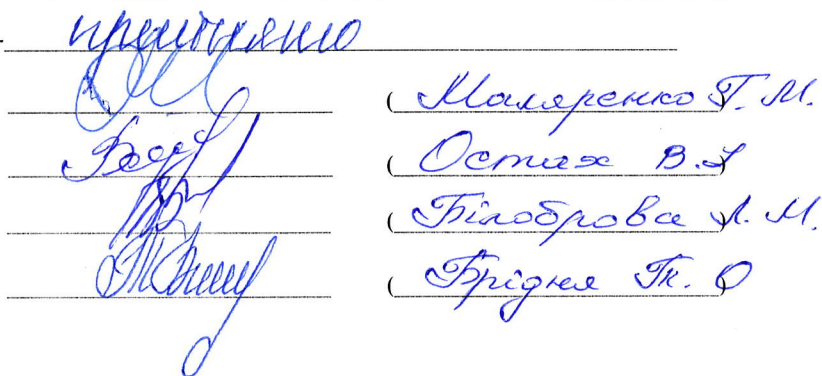 прийнято
( Маляренко Г. М. )
( Остах В. )
( Білоброва Л. М. )
( Брідня Т. О )